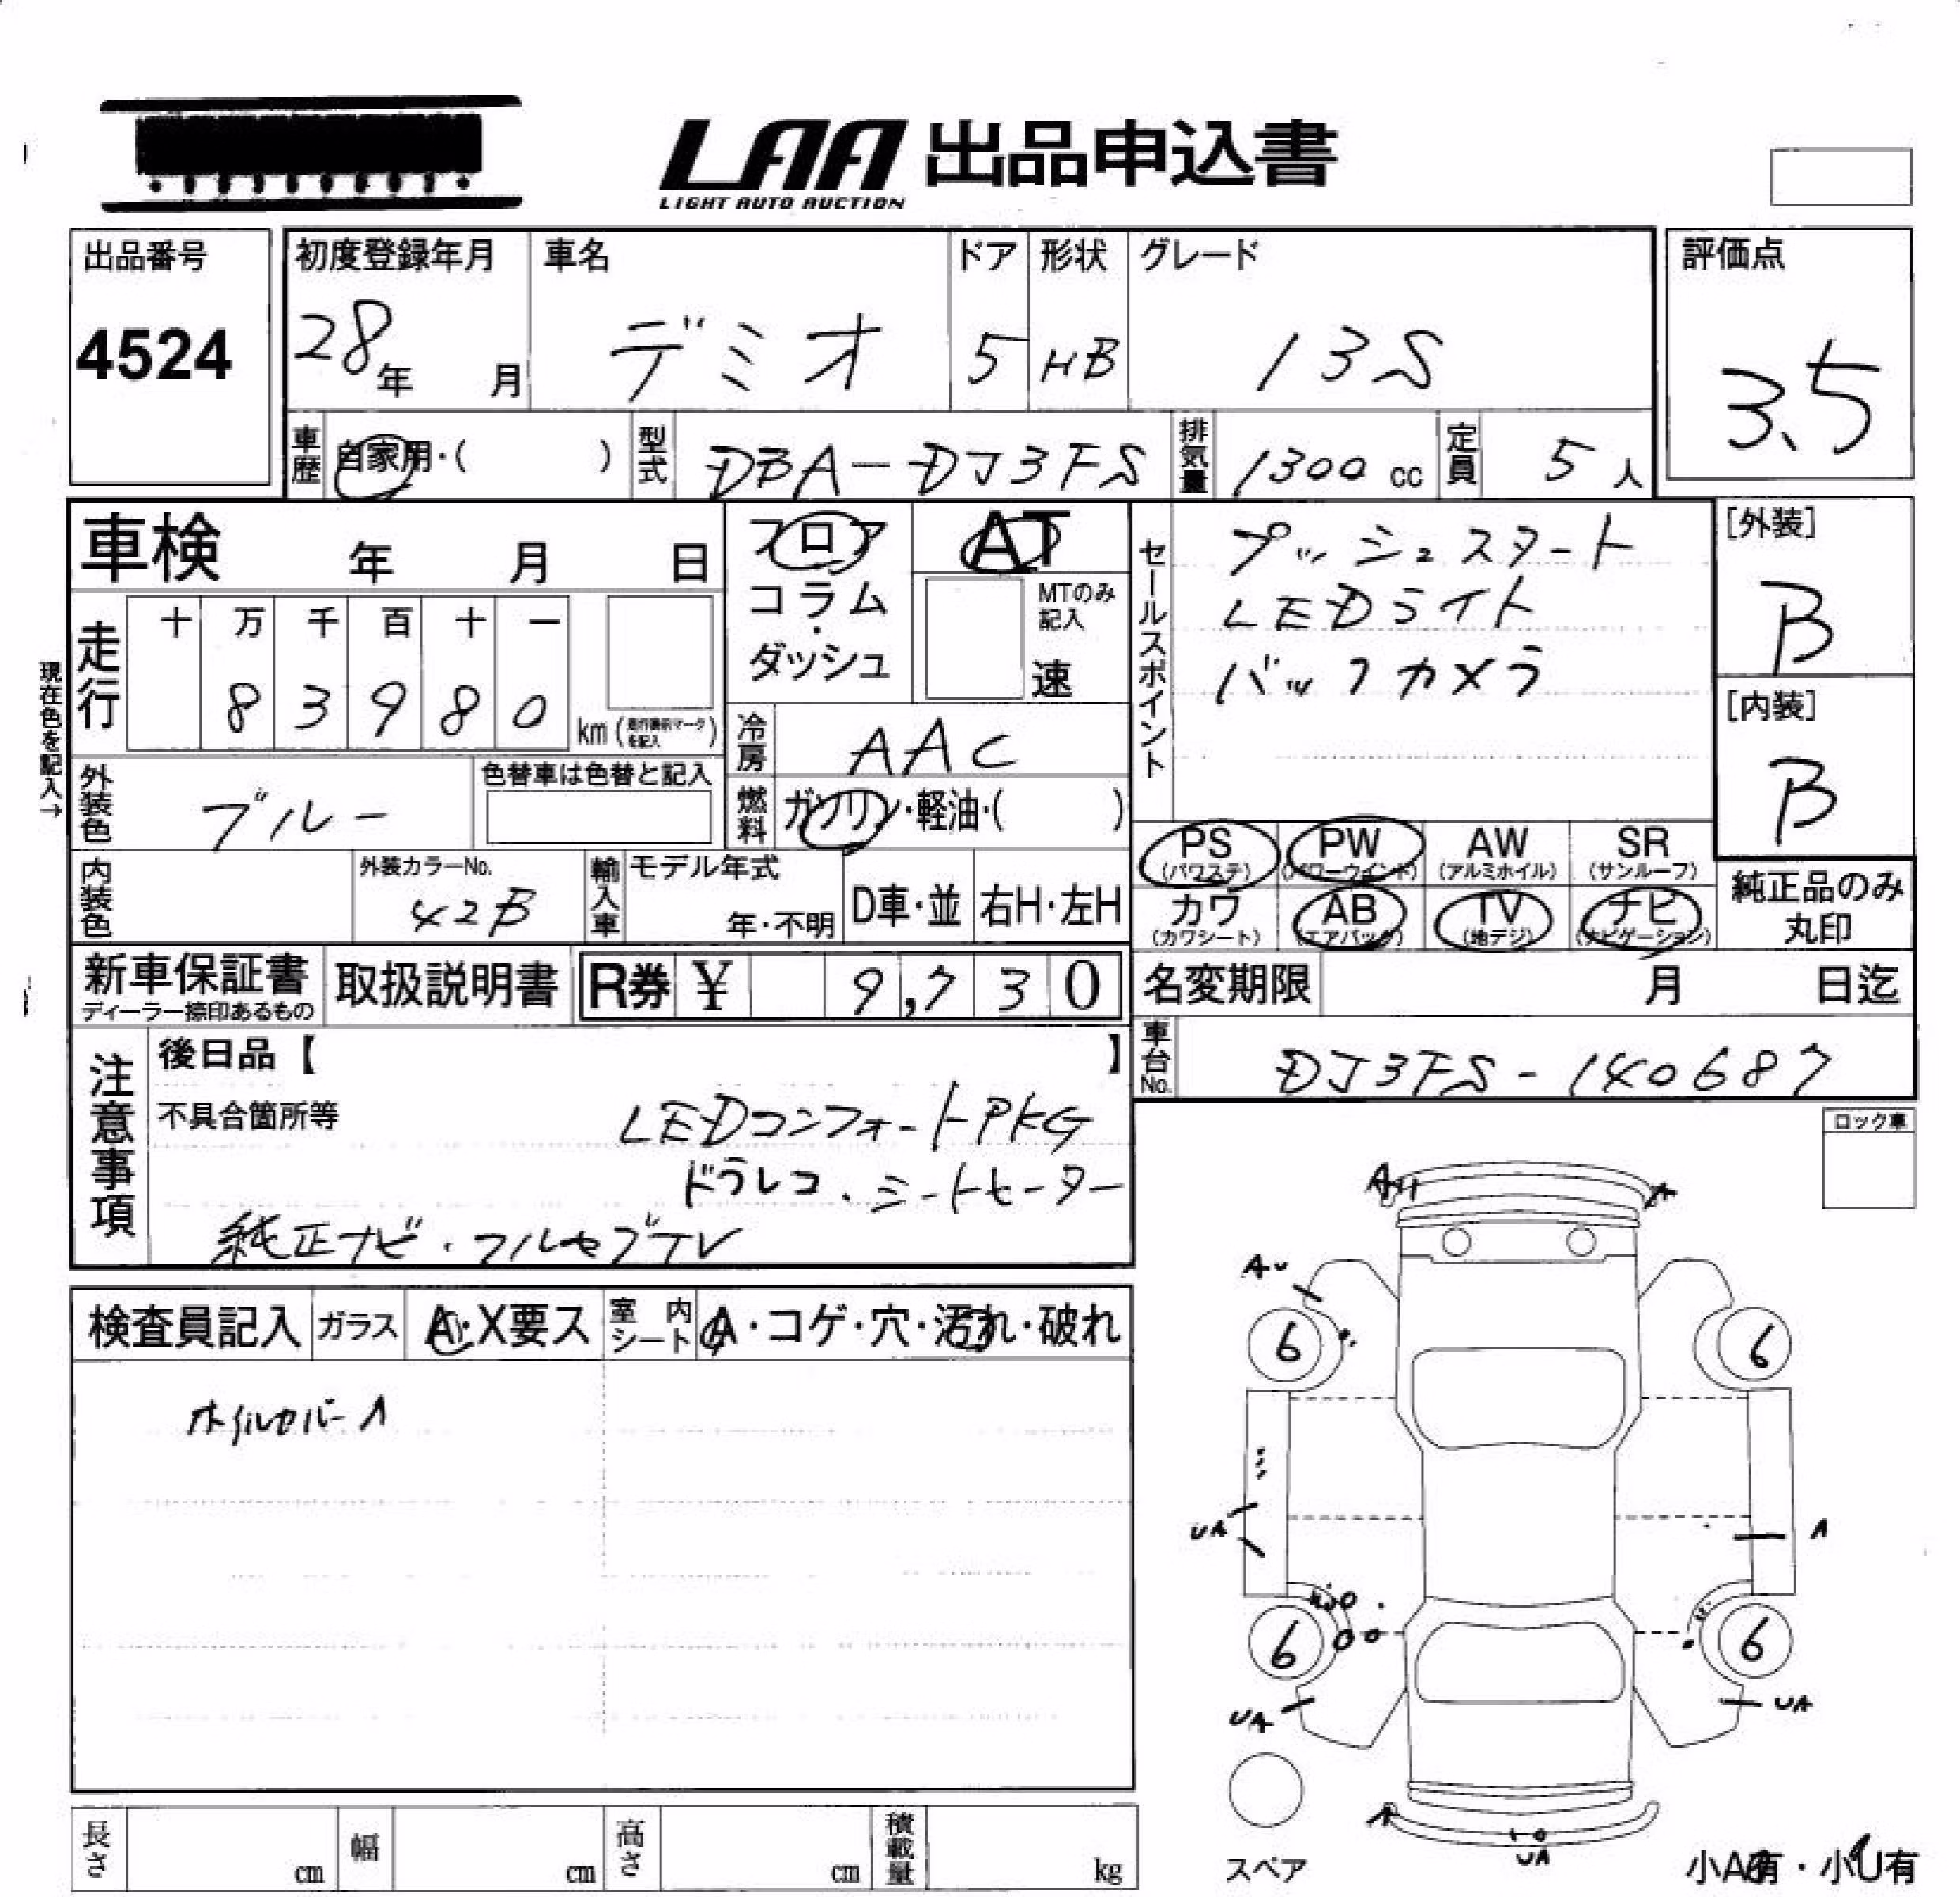 LAA 出品申込書
LIGHT AUTO AUCTION
出品番号
4524
初度登録年月
28年 月
車名
デミオ
ドア
5
形状
HB
グレード
13S
評価点
3.5
車歴
自家用・( )
型式
DBA-DJ3FS
排気量
1300 cc
定員
5人
車検 年 月 日
フロア
コラム・
ダッシュ
AT
MTのみ
記入
速
セールスポイント
プッシュスタート
LEDライト
バックカメラ
[外装]
B
[内装]
B
現在色を記入→
走行
十 万 千 百 十 一
8 3 9 8 0
km (走行表示マークを記入)
冷房
AAC
外装色
ブルー
色替車は色替と記入
燃料
ガソリン・軽油・( )
PS
(パワステ)
PW
(パワーウインド)
AW
(アルミホイル)
SR
(サンルーフ)
カワ
(カワシート)
AB
(エアバック)
TV
(地デジ)
ナビ
(ナビゲーション)
純正品のみ
丸印
内装色
外装カラーNo.
42B
輸入車
モデル年式
年・不明
D車・並
右H・左H
新車保証書
ディーラー捺印あるもの
取扱説明書
R券 ¥ 9,730
名変期限 月 日迄
車台No.
DJ3FS-140687
注意事項
後日品【 】
不具合箇所等
LEDコンフォートPKG
ドラレコ、シートヒーター
純正ナビ・フルセグTV
ロック車
検査員記入
ガラス
A・X要ス
室内
シート
A・コゲ・穴・汚れ・破れ
ホイルカバーA
A
A
AU
6
6
UA
A
6
6
UA
UA
A
UA
スペア
小A有・小U有
長さ cm
幅 cm
高さ cm
積載量 kg